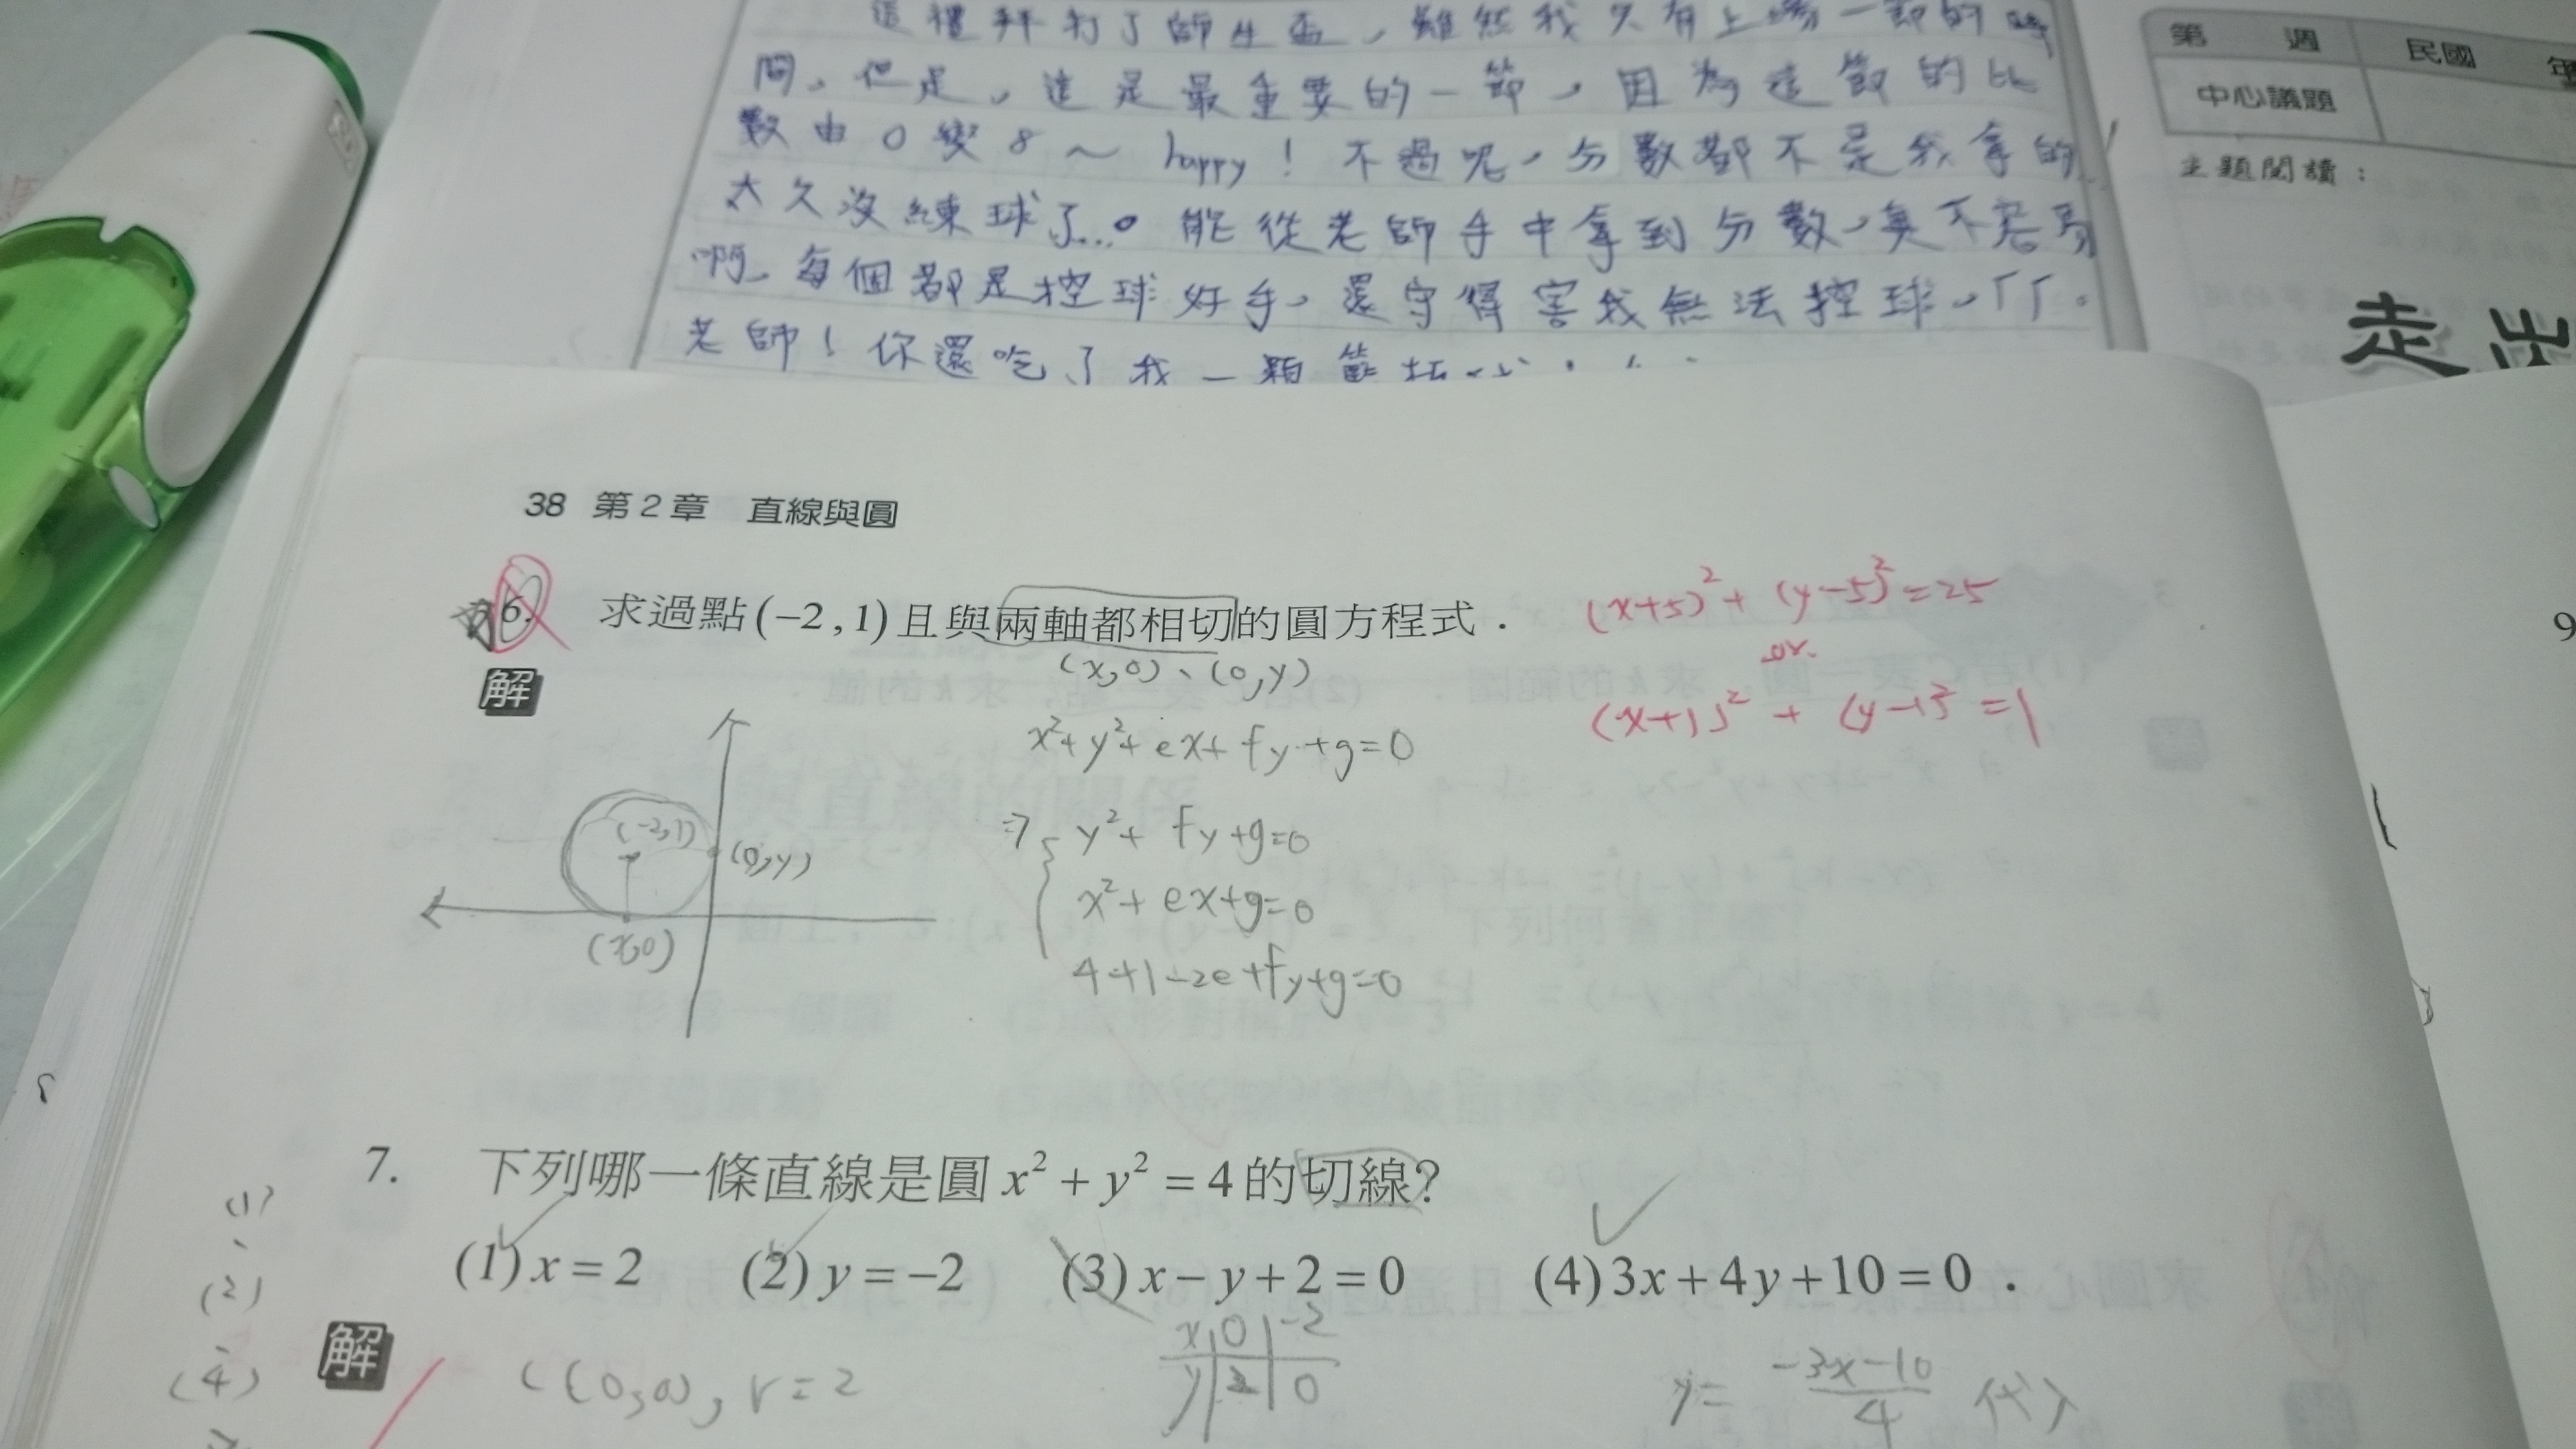 這禮拜打了師生盃，雖然我只有上場一節的時
間，但是，這是最重要的一節，因為這節的比
數由0變8～happy！不過呢，分數都不是我拿的
太久沒練球了...。能從老師手中拿到分數，真不容易
啊，每個都是控球好手，還守得害我無法控球，ㄏㄏ。
老師！你還吃了我一顆
第 週 民國 年
中心議題
主題閱讀：
走出
38 第2章 直線與圓
6. 求過點(−2,1)且與兩軸都相切的圓方程式．
(x+5)²+(y−5)²=25
or
(x+1)²+(y−1)²=1
(x,0)、(0,y)
解
x²+y²+ex+fy+g=0
⇒ y²+fy+g=0
x²+ex+g=0
4+1−2e+fy+g=0
(−2,1)
(0,y)
(x,0)
9
7. 下列哪一條直線是圓x²+y²=4的切線?
(1)x=2 (2)y=−2 (3)x−y+2=0 (4)3x+4y+10=0．
(1)
、
(2)
、
(4)
解
C(0,0), r=2
x 0 −2
y 2 0
y= −3x−10 / 4 代入